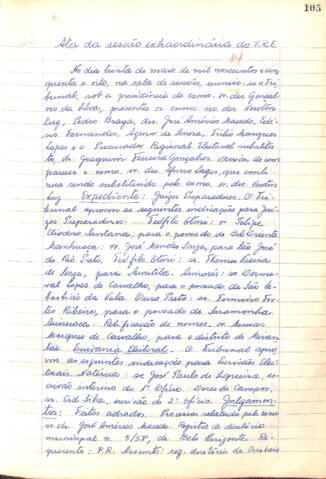 105
Ata da sessão extraordinária do T.R.E.
No dia trinta de maio de mil novecentos e cin
quenta e oito, na sala de sessões, reuniu-se o Tri
bunal, sob a presidência do exmo. sr. des. Gonçal
ves da Silva, presentes os exmos. srs. des. Newton
Luz, Pedro Braga, drs. José Américo Macedo, Edé
sio Fernandes, Agenor de Senra, Túlio Marques
Lopes e o Procurador Regional Eleitoral substitu
to, dr. Joaquim Ferreira Gonçalves. Deixou de com
parecer o exmo. sr. des. Afonso Lages, que conti
nua sendo substituído pelo exmo. sr. des. Newton
Luz. Expediente: Juízes Preparadores. O Tri
bunal aprovou as seguintes indicações para Juí
zes Preparadores: Teófilo Otoni: sr. Felipe
Teodoro Santana, para o povoado de Belo Oriente.
Manhuaçu: sr. José Mendes Souza, para São José
do Rio Preto. Teófilo Otoni: sr. Thomaz Vieira
de Souza, para
Aimorés: sr. Dormo
val Lopes de Carvalho, para o povoado de São Se
bastião da Vala. Ouro Preto: sr. Firmino For
tes Ribeiro, para o povoado de Saramenha.
Retificação de nomes. sr. Messias
Marques de Carvalho, para o distrito de
Escrivania Eleitoral. O Tribunal apro
vou as seguintes indicações para Escrivães Elei
torais. Natércia: sr. José Paulo de Siqueira, es
crivão interino do 1º Ofício. Dores de Campos,
sr. Cid Silva, escrivão do 2º Ofício. Julgamen
tos: Feitos adiados. Processos relatados pelo exmo
sr. dr. José Américo Macedo. Registro de diretório
municipal n. 5/58, de Belo Horizonte. Re
querente: P.R. Assunto: reg. diretório de